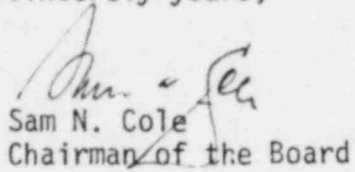 Sam N. Cole
Chairman of the Board